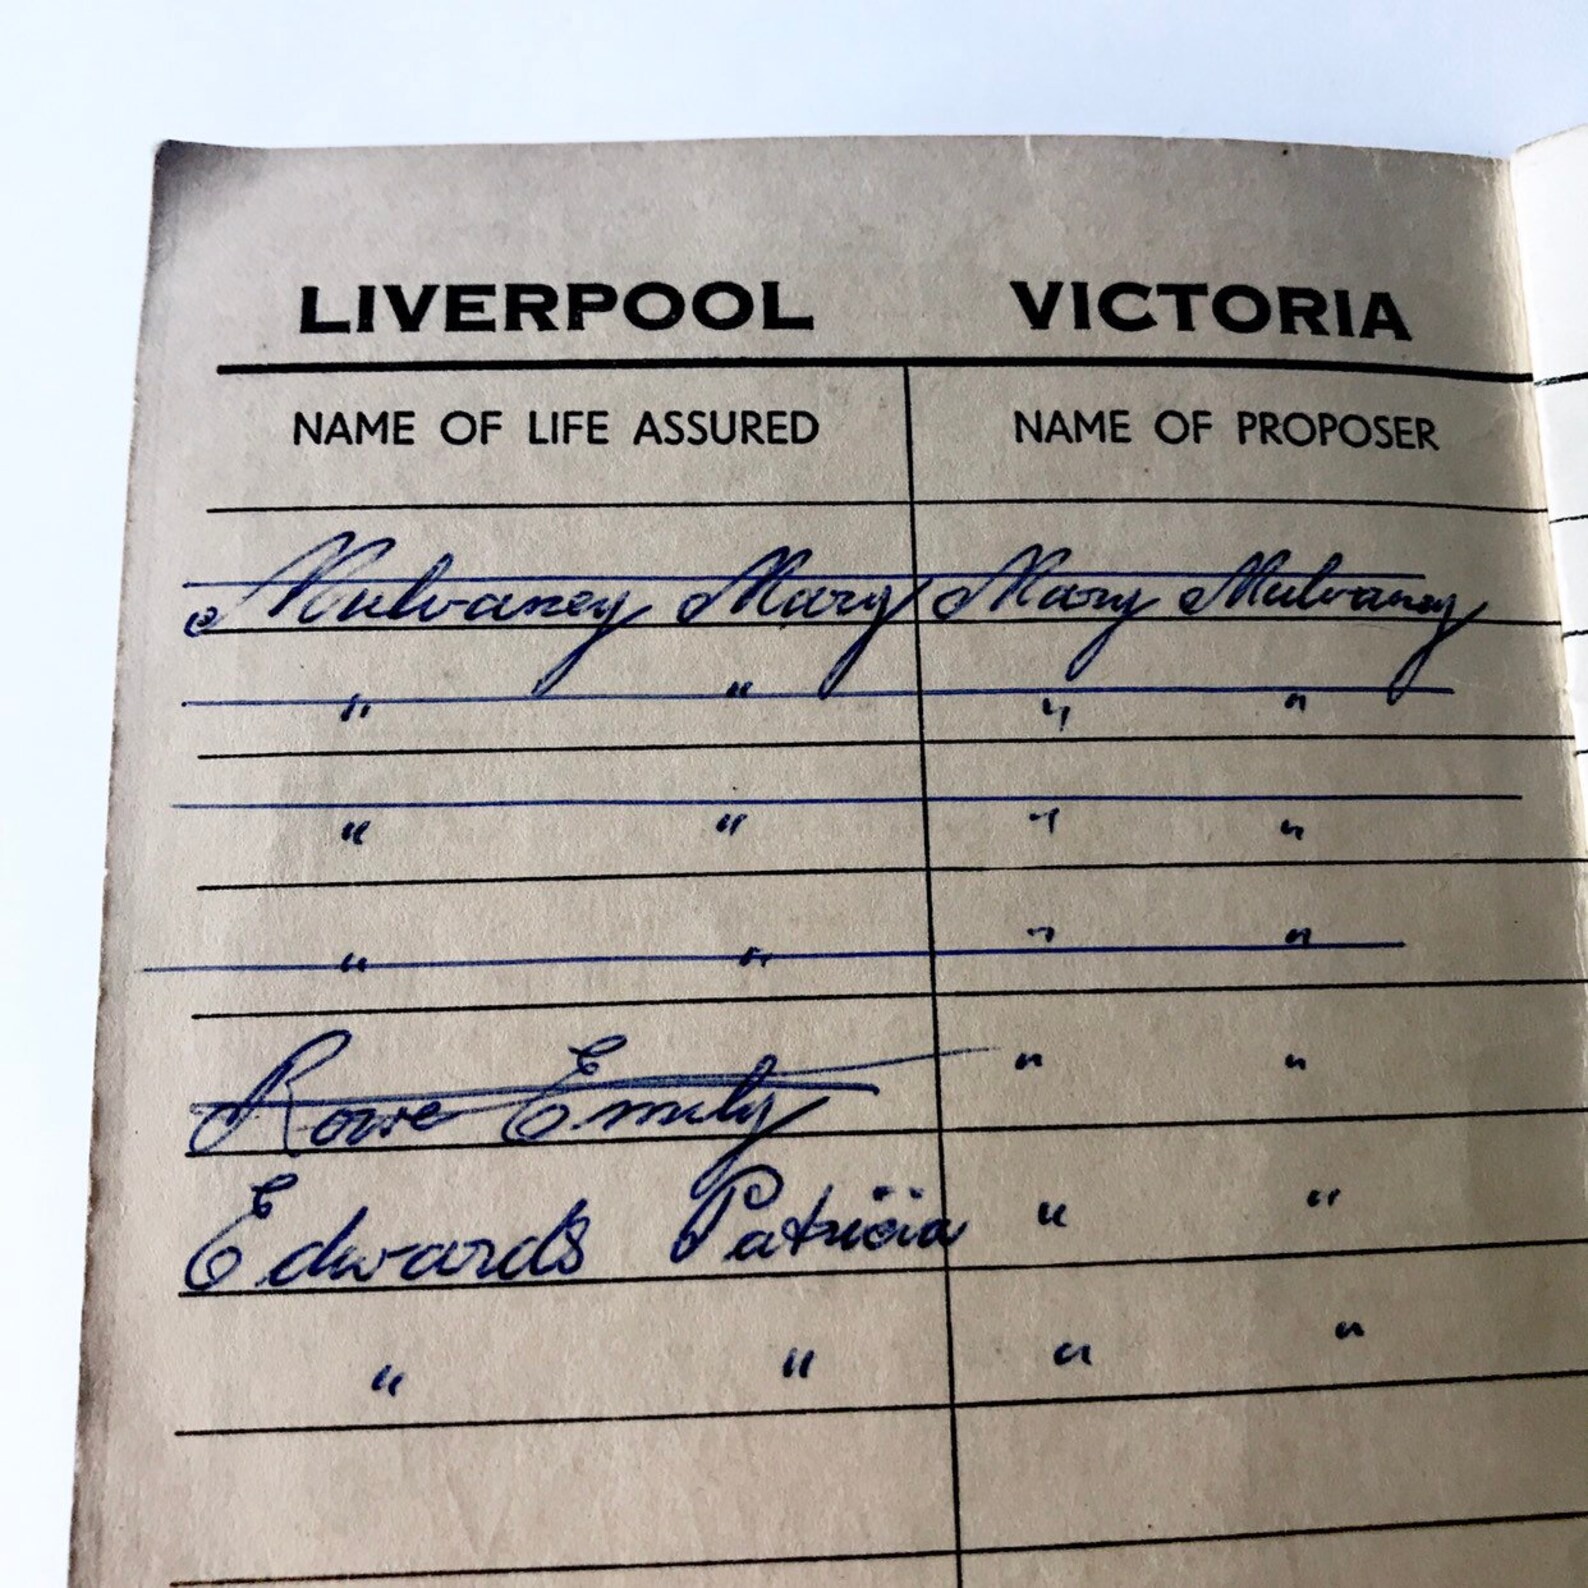 LIVERPOOL VICTORIA
NAME OF LIFE ASSURED NAME OF PROPOSER
Mulvaney Mary Mary Mulvaney
" " " "
" " " "
" " " "
Rowe Emily " "
Edwards Patricia " "
" " " "